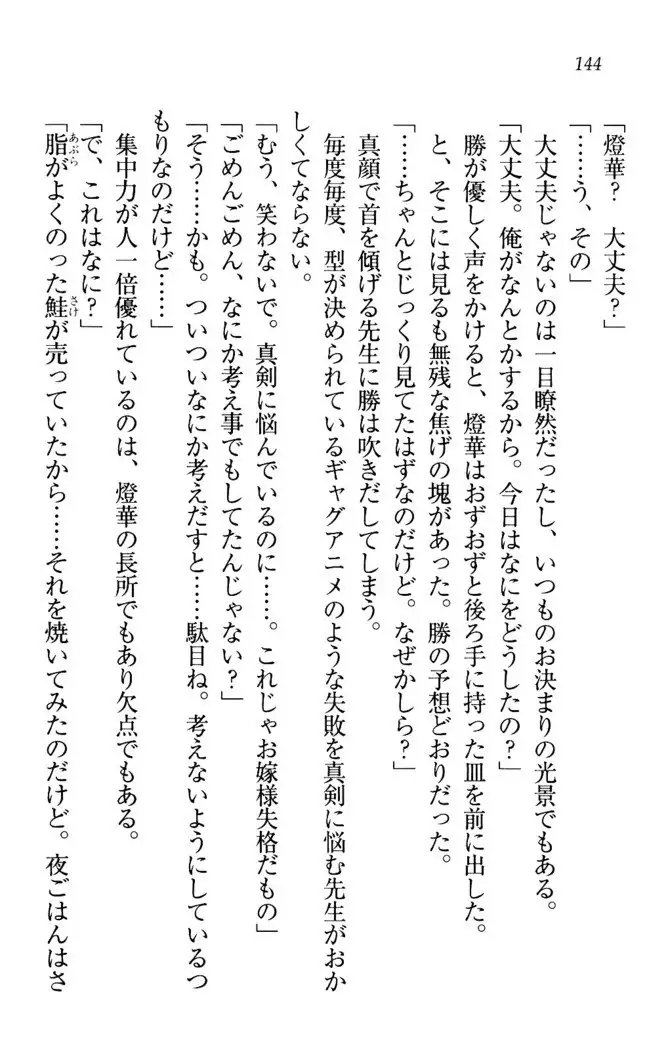 144
「燈華？　大丈夫？」
「……う、その」
　大丈夫じゃないのは一目瞭然だったし、いつものお決まりの光景でもある。
「大丈夫。俺がなんとかするから。今日はなにをどうしたの？」
　勝が優しく声をかけると、燈華はおずおずと後ろ手に持った皿を前に出した。
　と、そこには見るも無残な焦げの塊があった。勝の予想どおりだった。
「……ちゃんとじっくり見てたはずなのだけど。なぜかしら？」
　真顔で首を傾げる先生に勝は吹きだしてしまう。
　毎度毎度、型が決められているギャグアニメのような失敗を真剣に悩む先生がおか
しくてならない。
「むう、笑わないで。真剣に悩んでいるのに……。これじゃお嫁様失格だもの」
「ごめんごめん、なにか考え事でもしてたんじゃない？」
「そう……かも。ついついなにか考えだすと……駄目ね。考えないようにしているつ
もりなのだけど……」
　集中力が人一倍優れているのは、燈華の長所でもあり欠点でもある。
「で、これはなに？」
「脂あぶらがよくのった鮭さけが売っていたから……それを焼いてみたのだけど。夜ごはんはさ